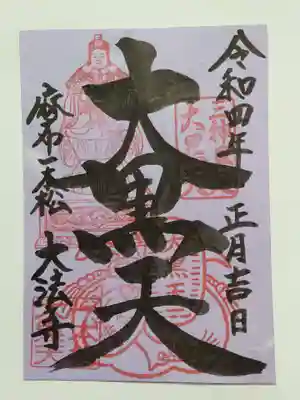 令和四年 正月吉日
大黒天
麻布一本松 大法寺